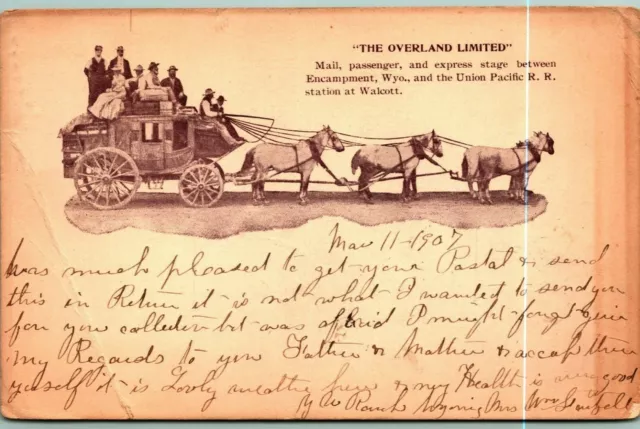 "THE OVERLAND LIMITED"
Mail, passenger, and express stage between
Encampment, Wyo., and the Union Pacific R. R.
station at Walcott.
Mar 11-1907
was much pleased to get your Postal & send
this in Return it is not what I wanted to send you
for you collection but was afraid I might forget give
my Regards to you Father & Mother & accept them
yourself it is Lovly weather here & my Health is very good
Ranch Wyoming Mrs Wm